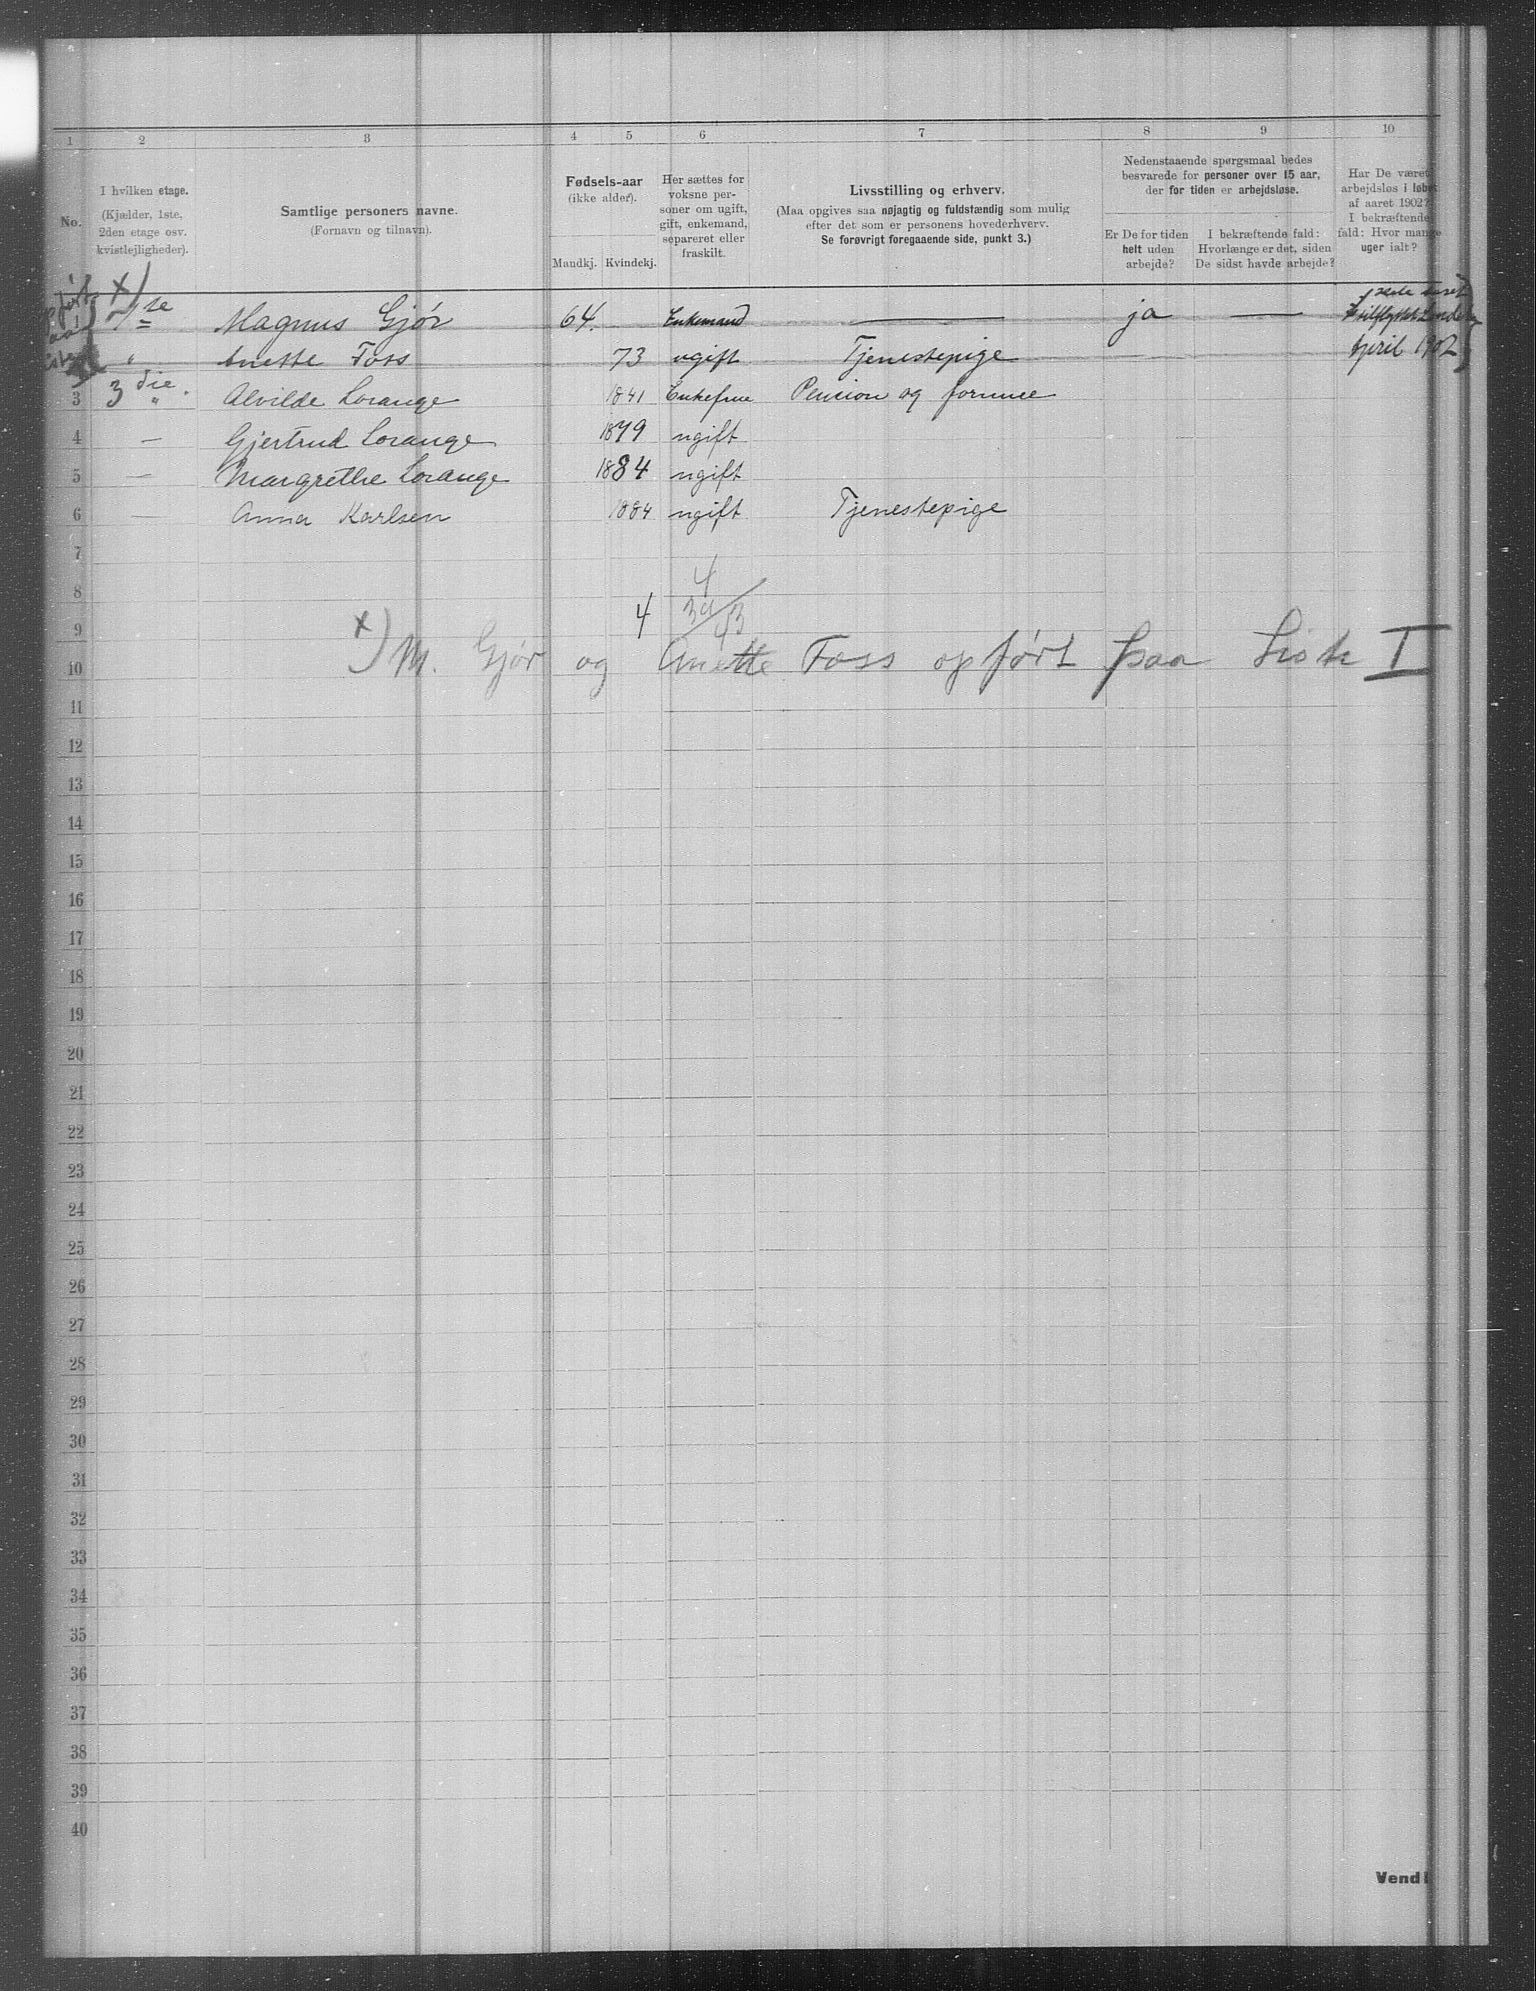 1 2 3 4 5 6 7 8 9 10
No.
I hvilken etage.
(Kjælder, 1ste,
2den etage osv.
kvistlejligheder).
Samtlige personers navne.
(Fornavn og tilnavn).
Fødsels-aar
(ikke alder).
Mandkj. Kvindekj.
Her sættes for
voksne per-
soner om ugift,
gift, enkemand,
separeret eller
fraskilt.
Livsstilling og erhverv.
(Maa opgives saa nøjagtig og fuldstændig som mulig
efter det som er personens hovederhverv.
Se forøvrigt foregaaende side, punkt 3.)
Nedenstaaende spørgsmaal bedes
besvarede for personer over 15 aar,
der for tiden er arbejdsløse.
Er De for tiden
helt uden
arbejde?
I bekræftende fald:
Hvorlænge er det, siden
De sidst havde arbejde?
Har De været
arbejdsløs i løbet
af aaret 1902?
I bekræftende
fald: Hvor mange
uger ialt?
x)
1 1ste Magnus Gjør 64. Enkemand — ja —
" Anette Foss 73 ugift Tjenestepige April 1902
3 3die " Alvilde Lorange 1841 Enkefrue Pension og formue
4 — Gjertrud Lorange 1879 ugift
5 — Margrethe Lorange 1884 ugift
6 — Anna Karlsen 1884 ugift Tjenestepige
7
8 4
9 4 39/43
10 x) M. Gjør og Anette Foss opført paa Liste I
11
12
13
14
15
16
17
18
19
20
21
22
23
24
25
26
27
28
29
30
31
32
33
34
35
36
37
38
39
40
Vend!